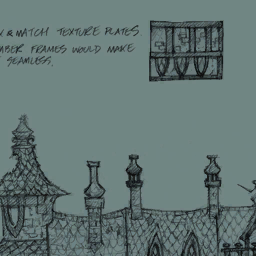 & MATCH TEXTURE PLATES.
FRAMES WOULD MAKE
SEAMLESS.